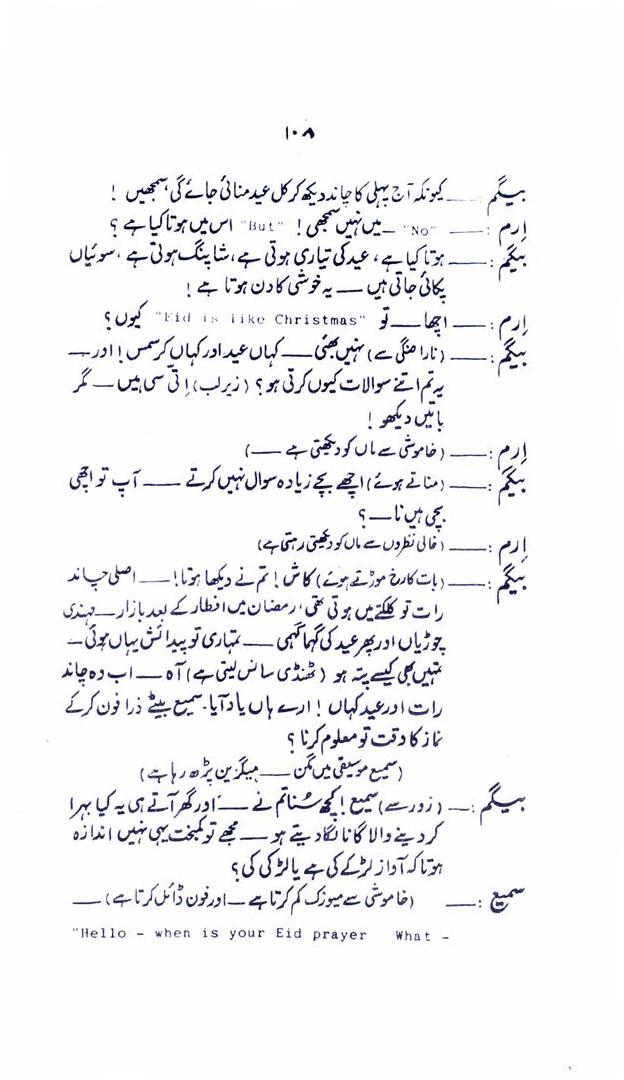 ۱۰۸
بیگم :___ کیونکہ آج پہلی کا چاند دیکھ کر کل عید منائی جائے گی، سمجھیں !
ارم :___ "No" — میں نہیں سمجھی ! "But" اس میں ہوتا کیا ہے ؟
بیگم :___ ہوتا کیا ہے، عید کی تیاری ہوتی ہے، شاپنگ ہوتی ہے، سوئیاں
پکائی جاتی ہیں ___ یہ خوشی کا دن ہوتا ہے !
ارم :___ اچھا ___ تو "Eid is like Christmas" کیوں ؟
بیگم :___ (ناراضگی سے) نہیں بھئی ___ کہاں عید اور کہاں کرسمس ! اور —
یہ تم اتنے سوالات کیوں کرتی ہو ؟ (زیر لب) اِتّی سی ہیں — مگر
باتیں دیکھو !
ارم :___ (خاموشی سے ماں کو دیکھتی ہے ___)
بیگم :___ (مناتے ہوئے) اچھے بچے زیادہ سوال نہیں کرتے ___ آپ تو اچھی
بچی ہیں نا — ؟
ارم :___ (خالی نظروں سے ماں کو دیکھتی رہتی ہے)
بیگم :___ (بات کا رخ موڑتے ہوئے) کاش ! تم نے دیکھا ہوتا ! ___ اصلی چاند
رات تو کلکتے میں ہوتی تھی، رمضان میں افطار کے بعد بازار ___ مہندی
چوڑیاں اور پھر عید کی گہما گہمی ___ تمہاری تو پیدائش یہاں ہوئی —
تمہیں بھی کیسے پتہ ہو (ٹھنڈی سانس لیتی ہے) آہ ___ اب وہ چاند
رات اور عید کہاں ! ارے ہاں یاد آیا۔ سمیع بیٹے ذرا فون کر کے
نماز کا وقت تو معلوم کرنا ؟
(سمیع موسیقی میں مگن ___ میگزین پڑھ رہا ہے)
بیگم :___ (زور سے) سمیع ! کچھ سُنا تم نے ___ اور گھر آتے ہی یہ کیا بہرا
کر دینے والا گانا لگا دیتے ہو ___ مجھے تو کمبخت یہی نہیں اندازہ
ہوتا کہ آواز لڑکے کی ہے یا لڑکی کی ؟
سمیع :___ (خاموشی سے میوزک کم کرتا ہے — اور فون ڈائل کرتا ہے) —
"Hello - when is your Eid prayer What -